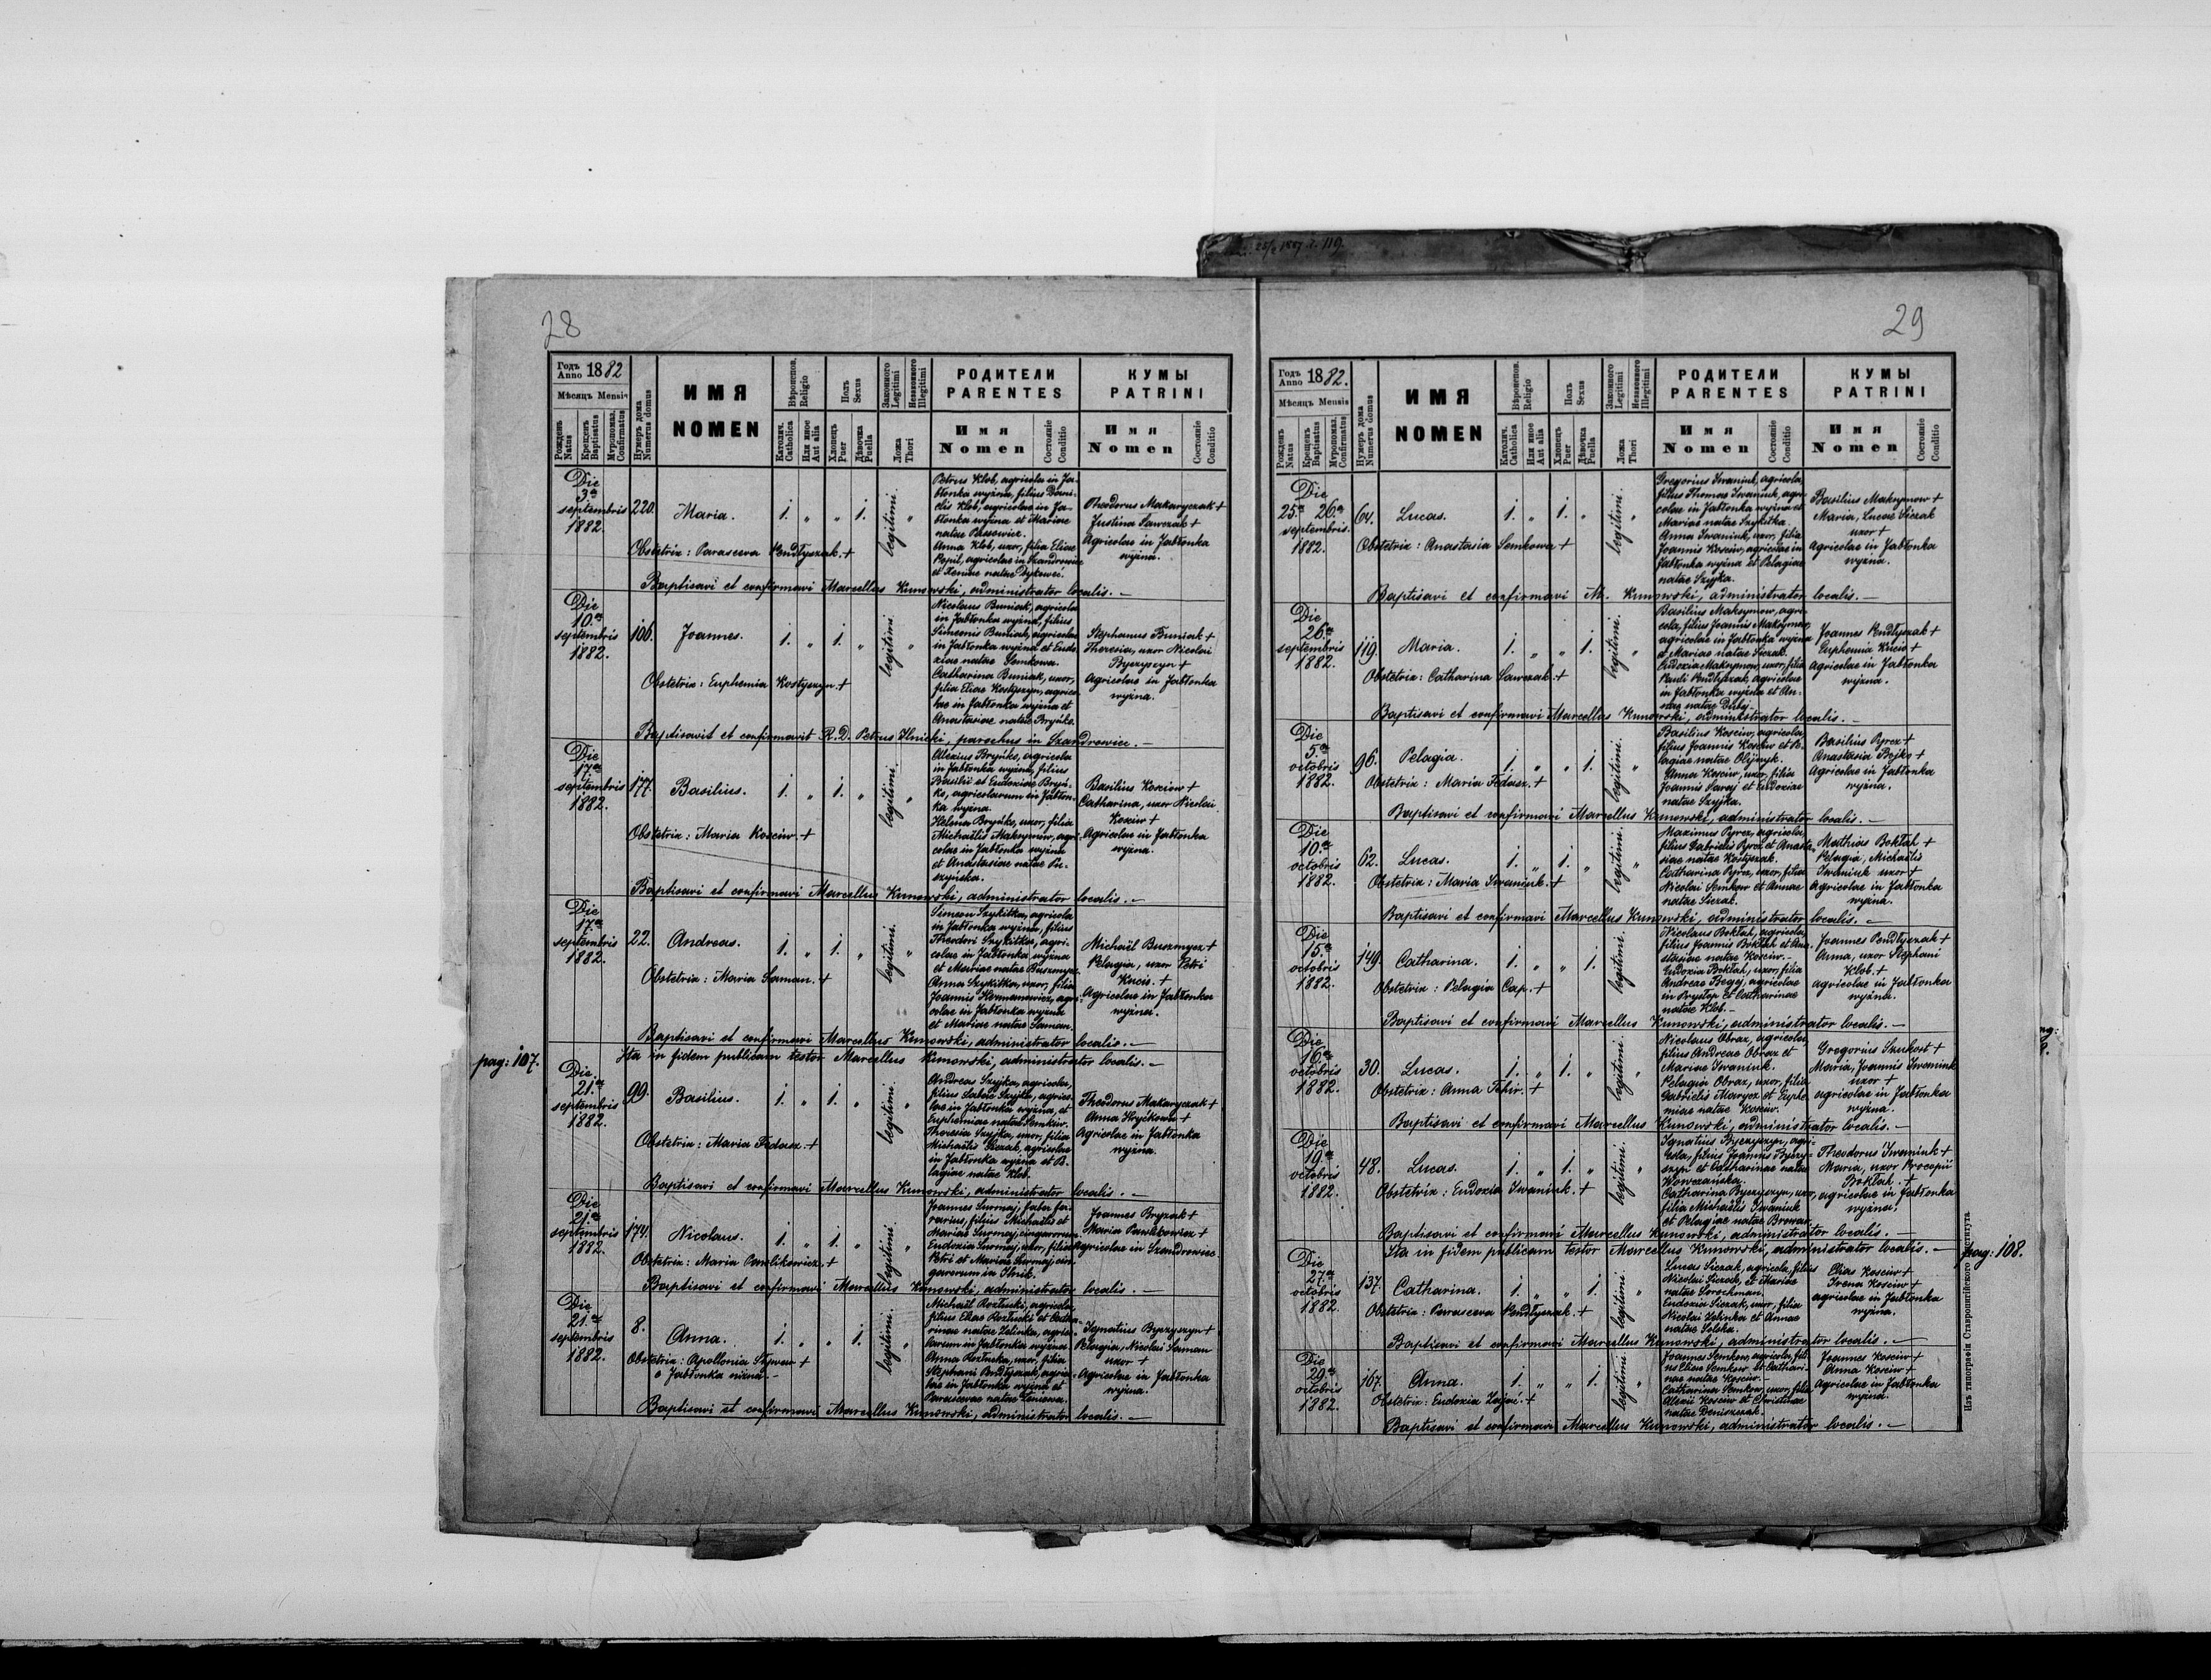 25/2 1887 г. 119.
28
Годъ Anno 1882
Мѣсяцъ Mensis
Рожденъ Natus
Крещенъ Baptisatus
Муропомаз. Confirmatus
Нумеръ дома Numerus domus
ИМЯ
NOMEN
Вѣроиспов. Religio
Католич. Catholica
Или иное Aut alia
Полъ Sexus
Хлопець Puer
Дѣвочка Puella
Законного Legitimi
Незаконного Illegitimi
Ложа Thori
РОДИТЕЛИ
PARENTES
Имя
Nomen
Состояніе Conditio
КУМЫ
PATRINI
Имя
Nomen
Состояніе Conditio
Die 3a septembris 1882.
220.
Maria.
1. „ „ 1. legitimi. „
Petrus Klob, agricola in Ja-
błonka wyżna, filius Dani-
elis Klob, agricolae in Ja-
błonka wyżna et Mariae
natae
Anna Klob, uxor, filia Eliae
Popil, agricolae in Szandrowiec
et Xeniae natae Dykowei.
Theodorus Makaryczak +
Justina Sawczak +
Agricolae in Jabłonka
wyżna.
Obstetrix: Parasceva Pendłyszak. +
Baptisavi et confirmavi Marcellus Kunowski, administrator localis. –
Die 10a septembris 1882.
106.
Joannes.
1. „ 1. „ legitimi. „
Nicolaus Buniak, agricola
in Jabłonka wyżna, filius
Simeonis Buniak, agricolae
in Jabłonka wyżna et Eudo-
xiae natae Semkowa.
Catharina Buniak, uxor,
filia Eliae Kostyszyn, agrico-
lae in Jabłonka wyżna et
Anastasiae natae Bryńko.
Stephanus Buniak +
Theresia, uxor Nicolai
Byczyszyn +
Agricolae in Jabłonka
wyżna.
Obstetrix: Euphemia Kostyszyn +
Baptisavit et confirmavit R. D. Petrus Ilnicki, parochus in Szandrowiec. –
Die 17a septembris 1882.
177.
Basilius.
1. „ 1. „ legitimi. „
Alexius Bryńko, agricola
in Jabłonka wyżna, filius
Basilii et Eudoxiae Bryń-
ko, agricolarum in Jabłon-
ka wyżna.
Helena Bryńko, uxor, filia
Michaëlis Maksymow, agri-
colae in Jabłonka wyżna
et Anastasiae natae Pu-
szyńska.
Basilius Kosciow +
Catharina, uxor Nicolai
Kosciw +
Agricolae in Jabłonka
wyżna.
Obstetrix: Maria Kosciw. +
Baptisavi et confirmavi Marcellus Kunowski, administrator localis. –
Die 17a septembris 1882.
22.
Andreas.
1. „ 1. „ legitimi. „
Simeon Szykitka, agricola
in Jabłonka wyżna, filius
Theodori Szykitka, agri-
colae in Jabłonka wyżna
et Mariae natae Buszmycz.
Anna Szykitka, uxor, filia
Joannis Hermanowicz, agri-
colae in Jabłonka wyżna
et Mariae natae Saman.
Michaël Buszmycz +
Pelagia, uxor Petri
Kucio. +
Agricolae in Jabłonka
wyżna.
Obstetrix: Maria Saman. +
Baptisavi et confirmavi Marcellus Kunowski, administrator localis. –
pag: 107.
Ita in fidem publicam testor Marcellus Kunowski, administrator localis. –
Die 21a septembris 1882.
99.
Basilius.
1. „ 1. „ legitimi. „
Andreas Szyjka, agricola,
filius Sabae Szyjka, agrico-
lae in Jabłonka wyżna, et
Euphemiae natae Semkiw.
Theresia Szyjka, uxor, filia
Michaëlis Siczak, agricolae
in Jabłonka wyżna et Pe-
lagiae natae Klob.
Theodorus Makaryczak +
Anna Hryćkowa +
Agricolae in Jabłonka
wyżna.
Obstetrix: Maria Fedasz. +
Baptisavi et confirmavi Marcellus Kunowski, administrator localis. –
Die 21a septembris 1882.
174.
Nicolaus.
1. „ 1. „ legitimi. „
Joannes Surmaj, faber fer-
rarius, filius Michaëlis et
Mariae Surmaj, cingarorum
Eudoxia Surmaj, uxor, filia
Petri et Mariae Surmaj, cin-
garorum in Ilnik.
Joannes Bryzak +
Maria Pawlikowicz +
Agricolae in Szandrowiec
Obstetrix: Maria Pawlikowicz. +
Baptisavi et confirmavi Marcellus Kunowski, administrator localis. –
Die 21a septembris 1882.
8.
Anna.
1. „ „ 1. legitimi. „
Michaël Rozłucki, agricola,
filius Eliae Rozłucki et Catha-
rinae natae Zelinka, agrico-
larum in Jabłonka wyżna.
Anna Rozłucka, uxor, filia
Stephani Pendłyszak, agrico-
lae in Jabłonka wyżna et
Parascevae natae
Ignatius Byczyszyn +
Pelagia, Nicolai Saman
uxor +
Agricolae in Jabłonka
wyżna.
Obstetrix: Apollonia +
e Jabłonka niżna. –
Baptisavi et confirmavi Marcellus Kunowski, administrator localis. –
29
Годъ Anno 1882.
Мѣсяцъ Mensis
Рожденъ Natus
Крещенъ Baptisatus
Муропомаз. Confirmatus
Нумеръ дома Numerus domus
ИМЯ
NOMEN
Вѣроиспов. Religio
Католич. Catholica
Или иное Aut alia
Полъ Sexus
Хлопець Puer
Дѣвочка Puella
Законного Legitimi
Незаконного Illegitimi
Ложа Thori
РОДИТЕЛИ
PARENTES
Имя
Nomen
Состояніе Conditio
КУМЫ
PATRINI
Имя
Nomen
Состояніе Conditio
Die 25a 26a septembris 1882.
64.
Lucas.
1. „ 1. „ legitimi. „
Gregorius Iwaniuk, agricola,
filius Thomae Iwaniuk, agri-
colae in Jabłonka wyżna et
Mariae natae Szykitka.
Anna Iwaniuk, uxor, filia
Joannis Kosciw, agricolae in
Jabłonka wyżna et Pelagiae
natae Szyjka.
Basilius Maksymow +
Maria, Lucae Siczak
uxor +
Agricolae in Jabłonka
wyżna.
Obstetrix: Anastasia Semkowa +
Baptisavi et confirmavi M. Kunowski, administrator localis. –
Die 26a septembris 1882.
119.
Maria.
1. „ „ 1. legitimi. „
Basilius Maksymow, agri-
cola, filius Joannis Maksymow,
agricolae in Jabłonka wyżna
et Mariae natae Siczak.
Eudoxia Maksymow, uxor, filia
Pauli Pendłyszak, agricolae
in Jabłonka wyżna et An-
nae natae Duby.
Joannes Pendłyszak +
Euphemia Kucio +
Agricolae in Jabłonka
wyżna.
Obstetrix: Catharina Sawczak. +
Baptisavi et confirmavi Marcellus Kunowski, administrator localis. –
Die 5a octobris 1882.
96.
Pelagia.
1. „ „ 1. legitimi. „
Basilius Kosciw, agricola,
filius Joannis Kosciw et Pe-
lagiae natae Olijnyk.
Anna Kosciw, uxor, filia
Joannis Saraj et Eudoxiae
natae Szyjka.
Basilius Pyrcz +
Anastasia Bojko +
Agricolae in Jabłonka
wyżna.
Obstetrix: Maria Fedasz. +
Baptisavi et confirmavi Marcellus Kunowski, administrator localis. –
Die 10a octobris 1882.
62.
Lucas.
1. „ 1. „ legitimi. „
Maximus Pyrcz, agricola,
filius Gabrielis Pyrcz et Anasta-
siae natae Kostyszak.
Catharina Pyrcz, uxor, filia
Nicolai Semkow et Annae
natae Siczak.
Mathias Bokłah +
Pelagia, Michaëlis
Iwaniuk uxor +
Agricolae in Jabłonka
wyżna.
Obstetrix: Maria Iwaniuk. +
Baptisavi et confirmavi Marcellus Kunowski, administrator localis. –
Die 15a octobris 1882.
149.
Catharina.
1. „ „ 1. legitimi. „
Nicolaus Bokłah, agricola,
filius Joannis Bokłah et Ana-
stasiae natae Kosciw. –
Eudoxia Bokłah, uxor, filia
Andreae Begej, agricolae
in Prysłop et Catharinae
natae Klob. –
Joannes Pendłyszak +
Anna, uxor Stephani
Klob. +
agricolae in Jabłonka
wyżna.
Obstetrix: Pelagia Cap. +
Baptisavi et confirmavi Marcellus Kunowski, administrator localis. –
Die 16a octobris 1882.
30.
Lucas.
1. „ 1. „ legitimi. „
Nicolaus Obraz, agricola,
filius Andreae Obraz et
Mariae Iwaniuk.
Pelagia Obraz, uxor, filia
Gabrielis Marycz et Euphe-
miae natae Kosciw.
Gregorius Szukost +
Maria, Joannis Iwaniuk
uxor +
agricolae in Jabłonka
wyżna.
Obstetrix: Anna Fehir. +
Baptisavi et confirmavi Marcellus Kunowski, administrator localis. –
Die 19a octobris 1882.
48.
Lucas.
1. „ 1. „ legitimi. „
Ignatius Byczyszyn, agri-
cola, filius Joannis Byczy-
szyn et Catharinae natae
Wowczańska.
Catharina Byczyszyn, uxor,
filia Michaëlis Iwaniuk
et Pelagiae natae Browar.
Theodorus Iwaniuk +
Maria, uxor Procopii
Bokłah. +
agricolae in Jabłonka
wyżna.
Obstetrix: Eudoxia Iwaniuk. +
Baptisavi et confirmavi Marcellus Kunowski, administrator localis. –
Ita in fidem publicam testor Marcellus Kunowski, administrator localis. –
pag: 108.
Die 27a octobris 1882.
137.
Catharina.
1. „ „ 1. legitimi. „
Lucas Siczak, agricola, filius
Nicolai Siczak, et Mariae
natae Sorochman.
Eudoxia Siczak, uxor, filia
Nicolai Zelinka et Annae
natae Solska.
Elias Kosciw +
Irena Kosciw +
agricolae in Jabłonka
wyżna.
Obstetrix: Parasceva Pendłyszak. +
Baptisavi et confirmavi Marcellus Kunowski, administrator localis. –
Die 29a octobris 1882.
167.
Anna.
1. „ „ 1. legitimi. „
Joannes Semkow, agricola, fili-
us Eliae Semkow et Cathari-
nae natae Kosciw. –
Catharina Semkow, uxor, filia
Alexii Kosciw et Christinae
natae Deniszczak.
Joannes Kosciw +
Anna Kosciw +
Agricolae in Jabłonka
wyżna.
Obstetrix: Eudoxia Zajac. +
Baptisavi et confirmavi Marcellus Kunowski, administrator localis. –
Изъ типографіи Ставропигійского Института